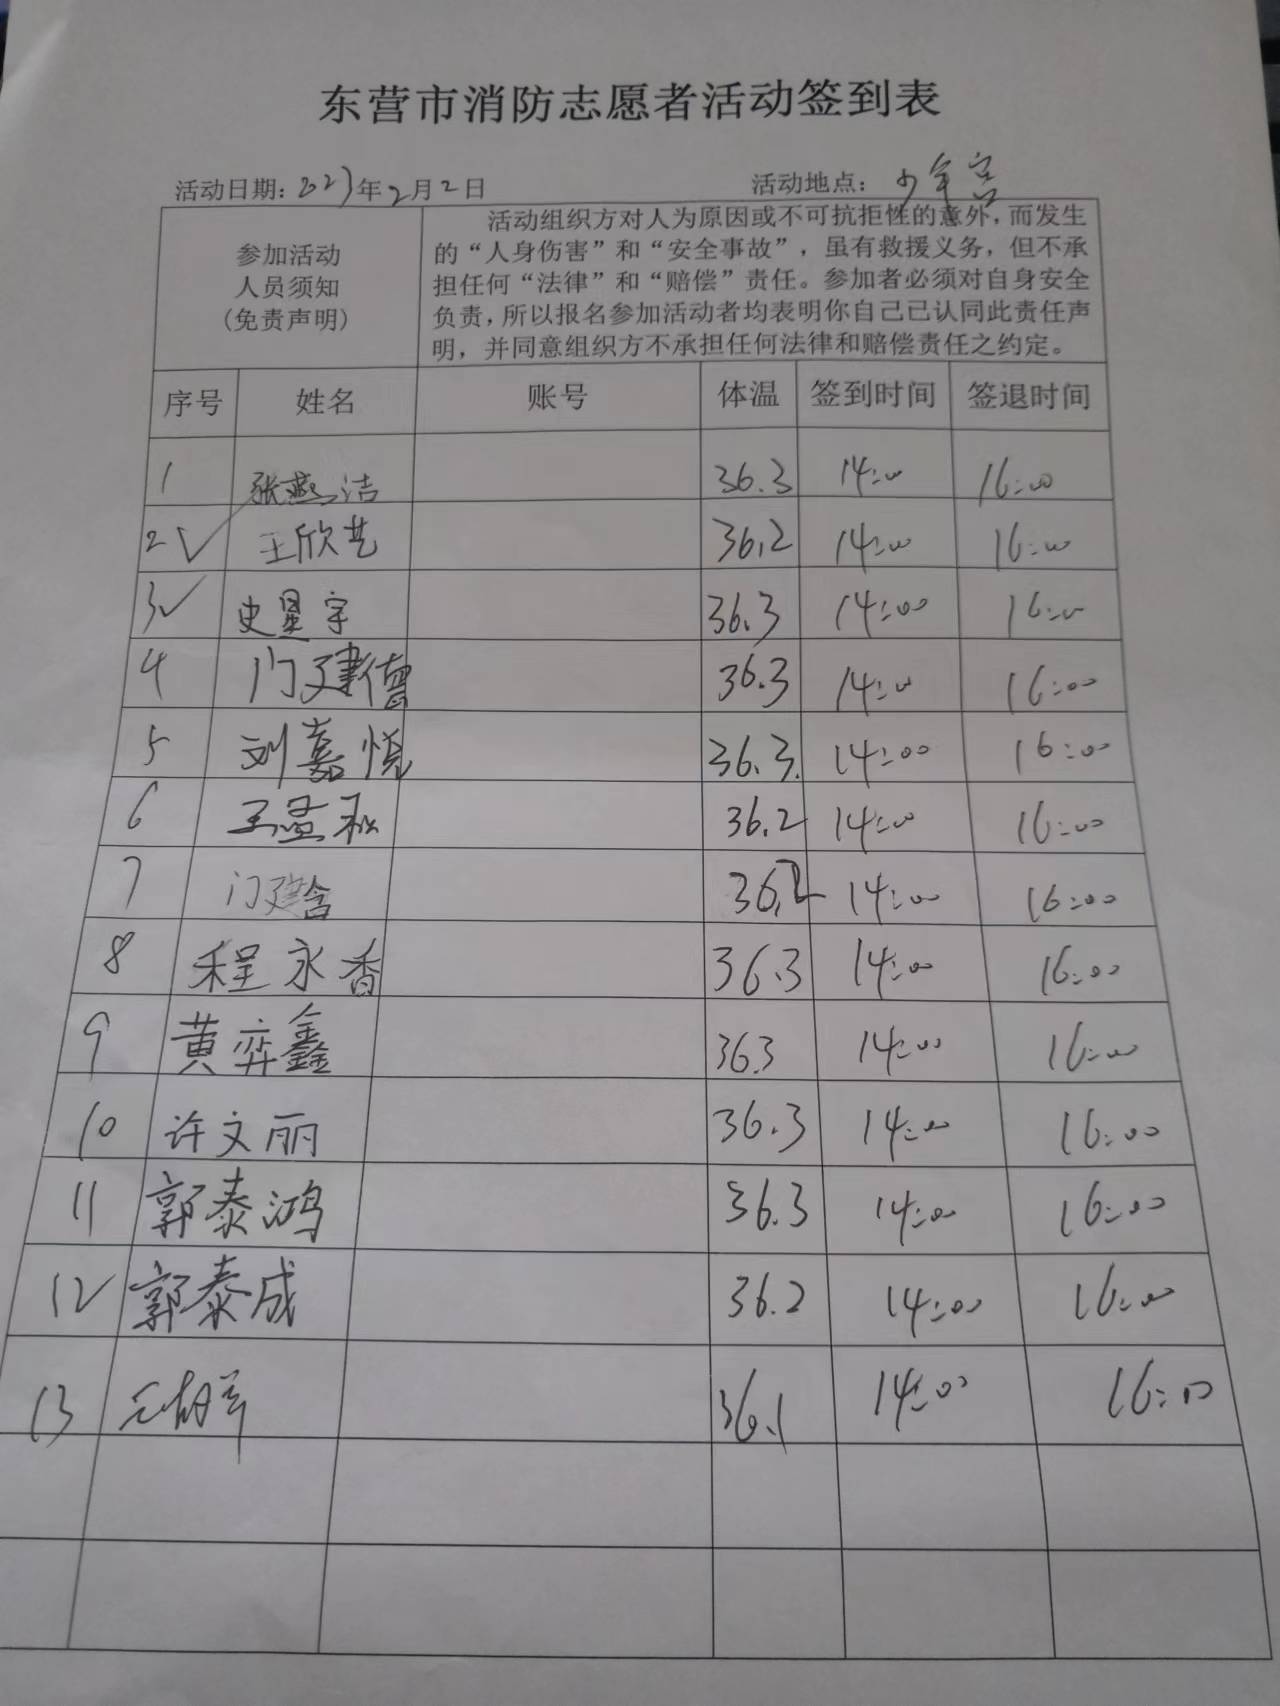 东营市消防志愿者活动签到表
活动日期：2023年2月2日 活动地点：少年宫
参加活动
人员须知
（免责声明）
活动组织方对人为原因或不可抗拒性的意外，而发生
的“人身伤害”和“安全事故”，虽有救援义务，但不承
担任何“法律”和“赔偿”责任。参加者必须对自身安全
负责，所以报名参加活动者均表明你自己已认同此责任声
明，并同意组织方不承担任何法律和赔偿责任之约定。
序号 姓名 账号 体温 签到时间 签退时间
1 张燕洁 36.3 14:00 16:00
2✓ 王欣艺 36.2 14:00 16:00
3✓ 史星宇 36.3 14:00 16:00
4 门建德 36.3 14:00 16:00
5 刘嘉悦 36.3 14:00 16:00
6 36.2 14:00 16:00
7 门建含 36.2 14:00 16:00
8 程永香 36.3 14:00 16:00
9 黄弈鑫 36.3 14:00 16:00
10 许文丽 36.3 14:00 16:00
11 郭泰鸿 36.3 14:00 16:00
12✓ 郭泰成 36.2 14:00 16:00
13 36.1 14:00 16:00